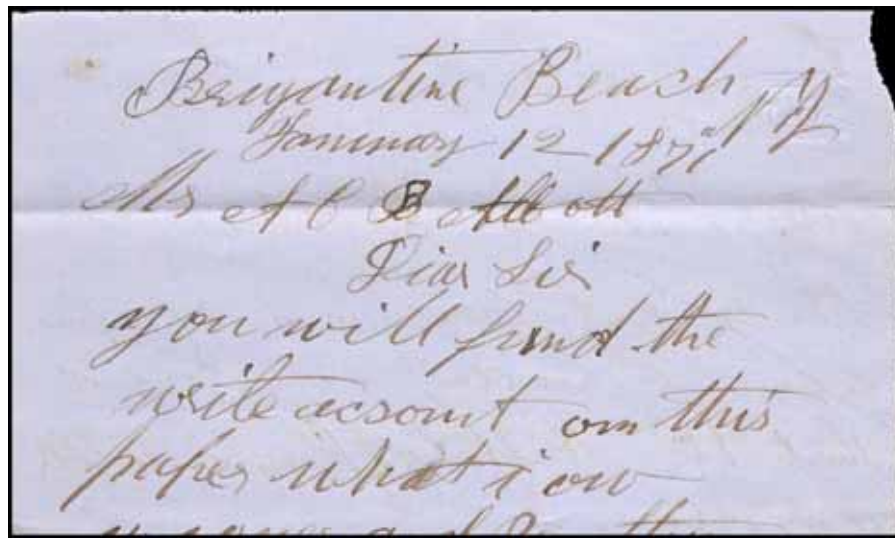 Brigantine Beach N J
January 12 1871
Mr A C B Abbott
Dear Sir
you will find the
write acsount om this
paper what i ow